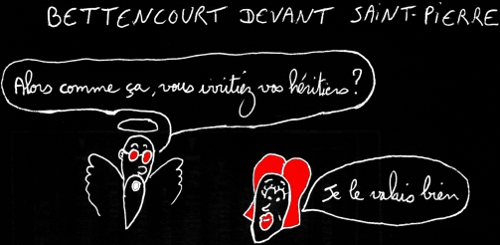 BETTENCOURT DEVANT SAINT-PIERRE
Alors comme ça, vous irritiez vos héritiers?
Je le valais bien